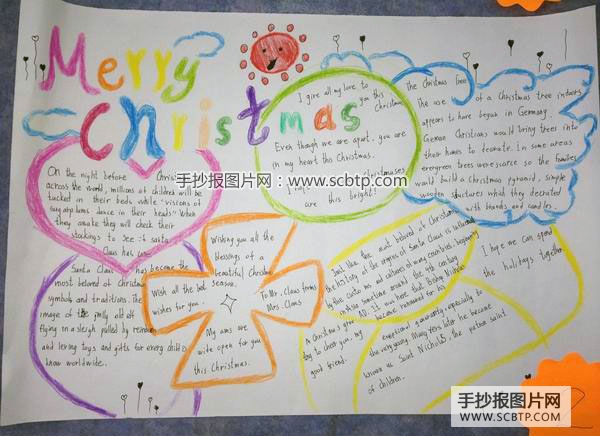 Merry
Christmas
I give all my love to
you this
Christmas
Even though we are apart, you are
in my heart this Christmas.
christmases
are this bright!
The Christmas Tree
The use of a Christmas tree indoors
appears to have begun in Germany.
German Christians would bring trees into
their homes to decorate. In some areas
evergreen trees were scarce so the families
would build a Christmas pyramid, simple
wooden structures which they decorated
with brands and candles.
手抄报图片网：www.scbtp.com
On the night before Chris
across the world, millions of children will be
tucked in their beds while "visions of
sugarplums dance in their heads" When
they awake they will check their
stockings to see if santa
Claus has came.
Santa Claus has become the
most beloved of Christmas
symbols and traditions. The
image of the jolly old elf
flying in a sleigh pulled by reindeer
and leaving toys and gifts for every child is
know worldwide.
Wishing you all the
blessings of a
beautiful Christmas
season.
Wish all the best
wishes for you.
To Mr. Claus forms
Mrs. Claus
My arms are
wide open for you
this Christmas.
Just like the most beloved of Christmas
the history of the origins of Santa Claus is
by the customs and cultures of many countries, beginning
in Asia sometime around the 4th century
AD. It was here that Bishop Nicholas
became renowned for his
A Christmas
to cheer you, my
good friend.
emotional generosity, especially to
the very young. Many years later he became
known as Saint Nicholas, the patron saint
of children.
I hope we can spend
the holidays together
手抄报图片网
WWW.SCBTP.COM